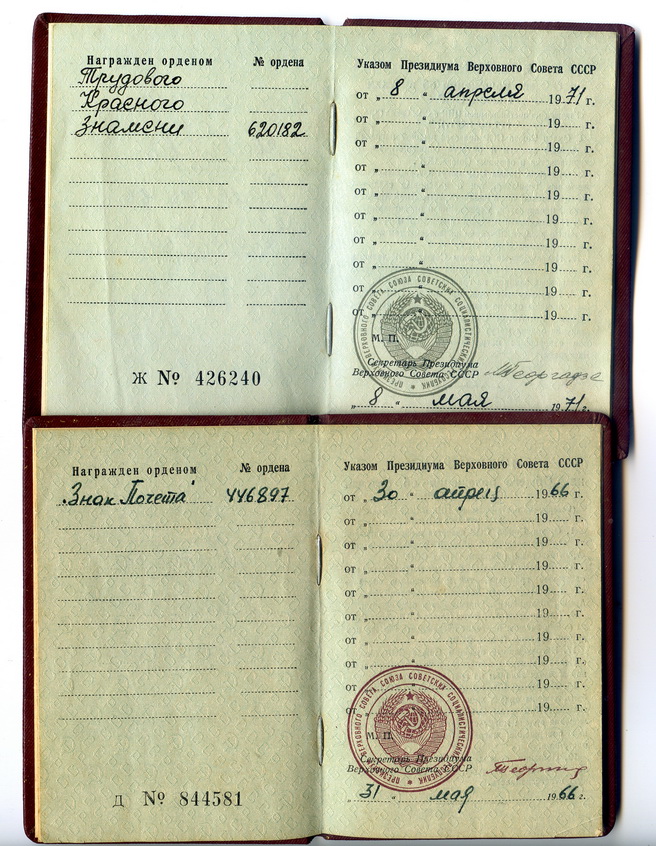 Награжден орденом № ордена
Трудового
Красного
Знамени 620182
Ж № 426240
Указом Президиума Верховного Совета СССР
от „ 8 “ апреля 1971 г.
от „ “ 19 г.
от „ “ 19 г.
от „ “ 19 г.
от „ “ 19 г.
от „ “ 19 г.
от „ “ 19 г.
от „ “ 19 г.
от „ “ 19 г.
от „ “ 19 г.
ПРЕЗИДИУМ ВЕРХОВНОГО СОВЕТА СОЮЗА СОВЕТСКИХ СОЦИАЛИСТИЧЕСКИХ РЕСПУБЛИК
М. П.
Секретарь Президиума
Верховного Совета СССР МГеоргадзе
„ 8 “ мая 1971 г.
Награжден орденом № ордена
„Знак Почета“ 446897
Д № 844581
Указом Президиума Верховного Совета СССР
от „ 30 “ апрел 1966 г.
от „ “ 19 г.
от „ “ 19 г.
от „ “ 19 г.
от „ “ 19 г.
от „ “ 19 г.
от „ “ 19 г.
от „ “ 19 г.
от „ “ 19 г.
от „ “ 19 г.
ПРЕЗИДИУМ ВЕРХОВНОГО СОВЕТА СОЮЗА СОВЕТСКИХ СОЦИАЛИСТИЧЕСКИХ РЕСПУБЛИК
М. П.
Секретарь Президиума
Верховного Совета СССР
„ 31 “ мая 1966 г.